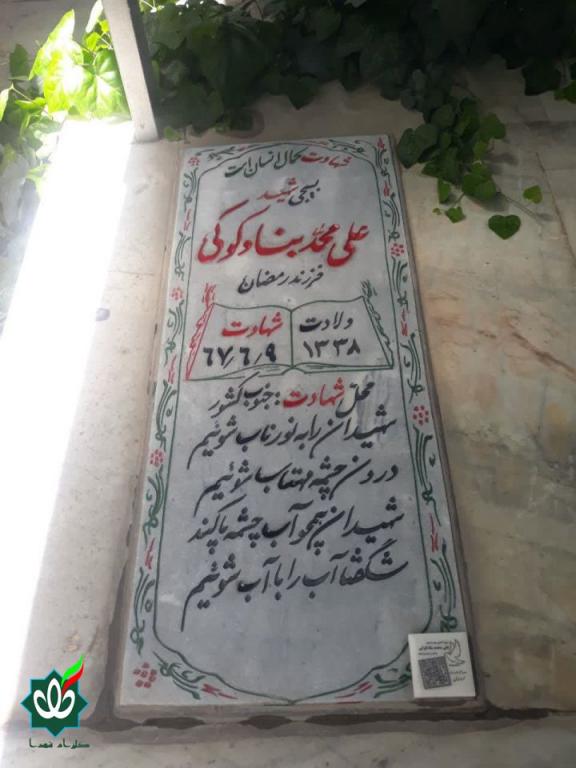 شهادت کمال انسان است
بسیجی شهید
علی محمد بناوکوکی
فرزند رمضان
ولادت شهادت
۱۳۳۸ ۶۷/۶/۹
محل شهادت: جنوب کشور
شهیدان را به نور ناب شوئیم
درون چشمه مهتاب شوئیم
شهیدان همچو آب چشمه پاکند
شگفتا آب را با آب شوئیم